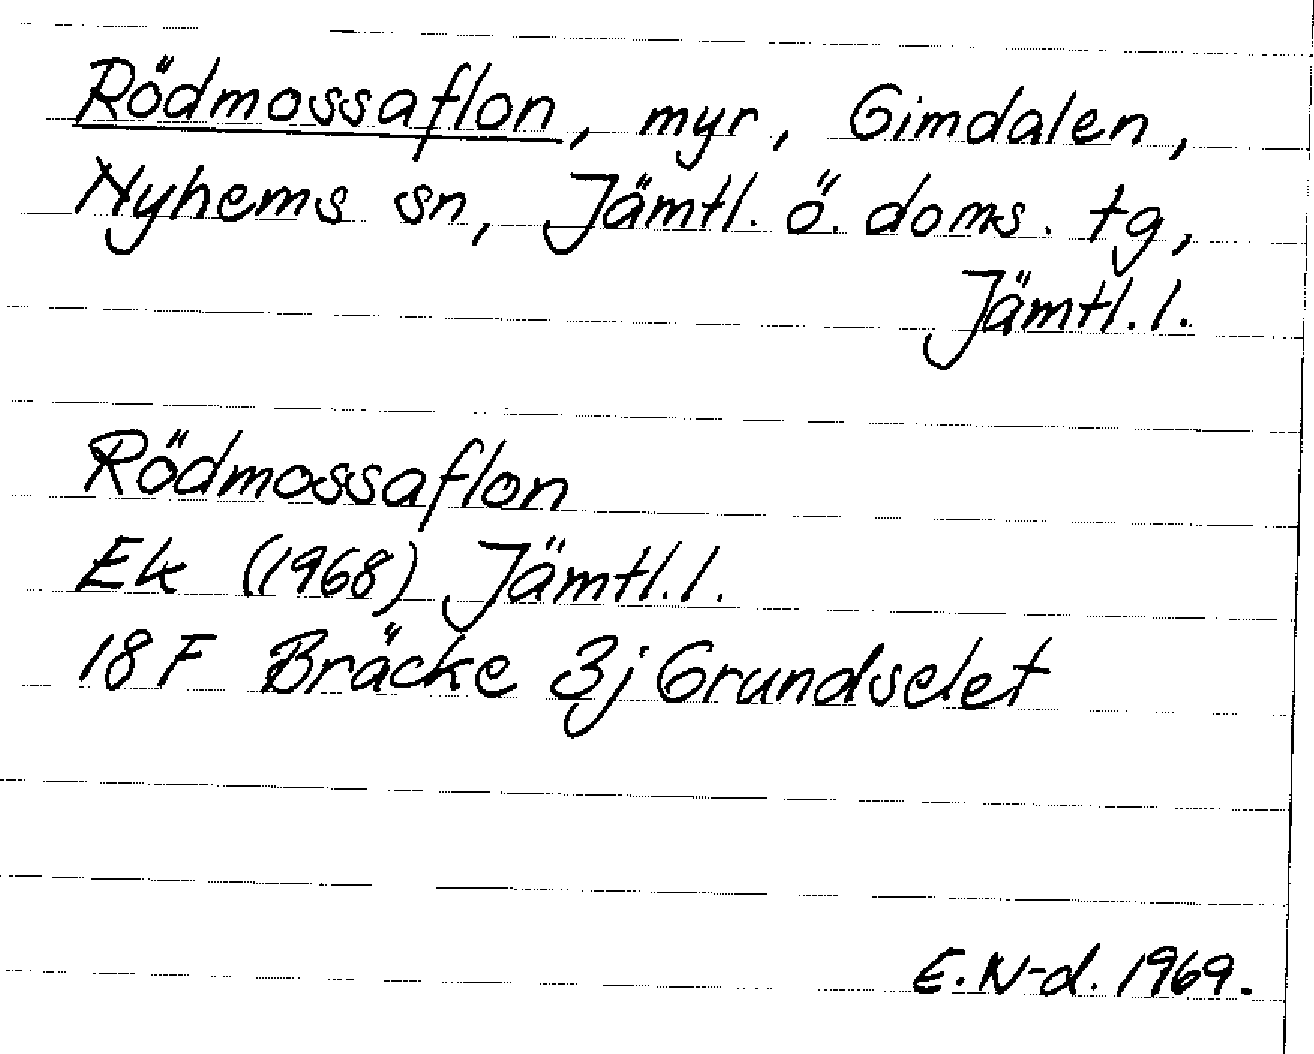 Rödmossaflon, myr, Gimdalen,
Nyhems sn, Jämtl. ö. doms. tg,
Jämtl. l.
Rödmossaflon
Ek (1968) Jämtl. l.
18 F Bräcke 3j Grundselet
E. N-d. 1969.